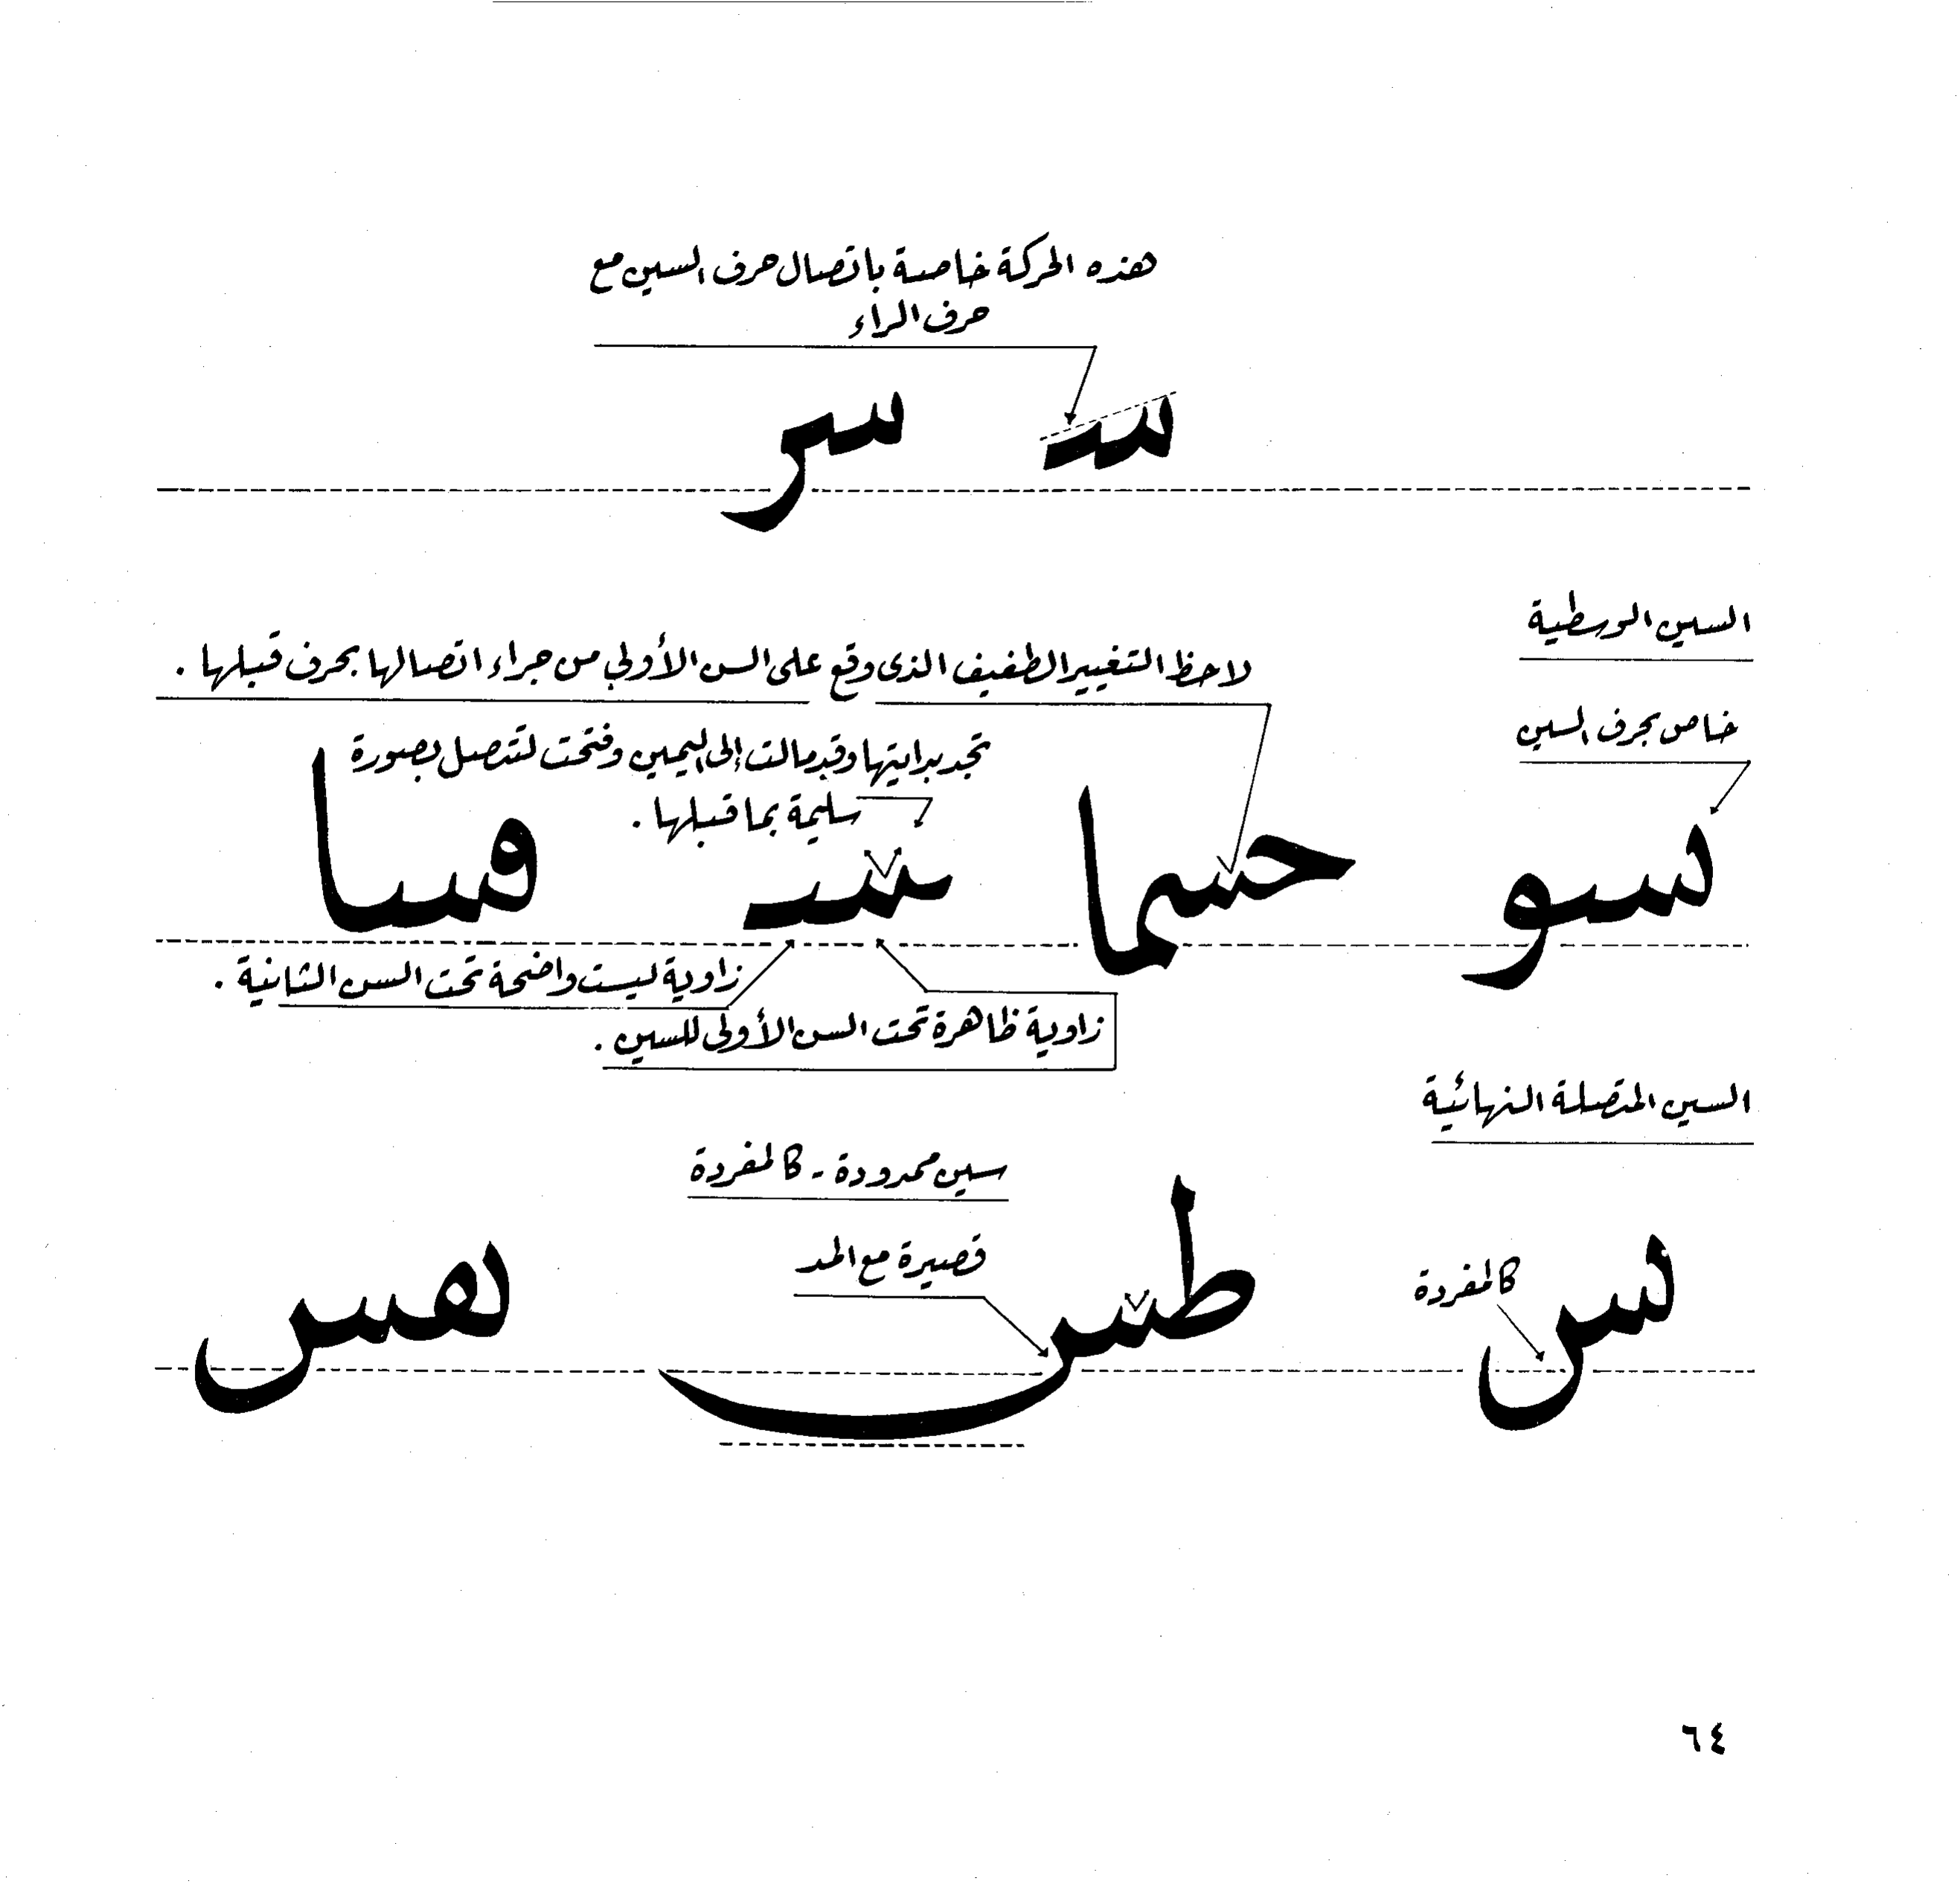 هذه الحركة خاصة باتصال حرف السين مع
حرف الراء
سـ سر
السين الوسطية
لاحظ التغيير الطفيف الذى وقع على السن الأولى من جراء اتصالها بحرف قبلها .
خاص بحرف السين
تجد بدايتها وقد مالت إلى اليمين وفتحت لتتصل بصورة
سليمة بما قبلها .
سو حسما ـسـ فسا
زاوية ليست واضحة تحت السن الثانية .
زاوية ظاهرة تحت السن الأولى للسين .
السين المتصلة النهائية
سين ممدودة - كالمفردة
قصيرة مع المد
كالمفردة
س طس هس
٦٤